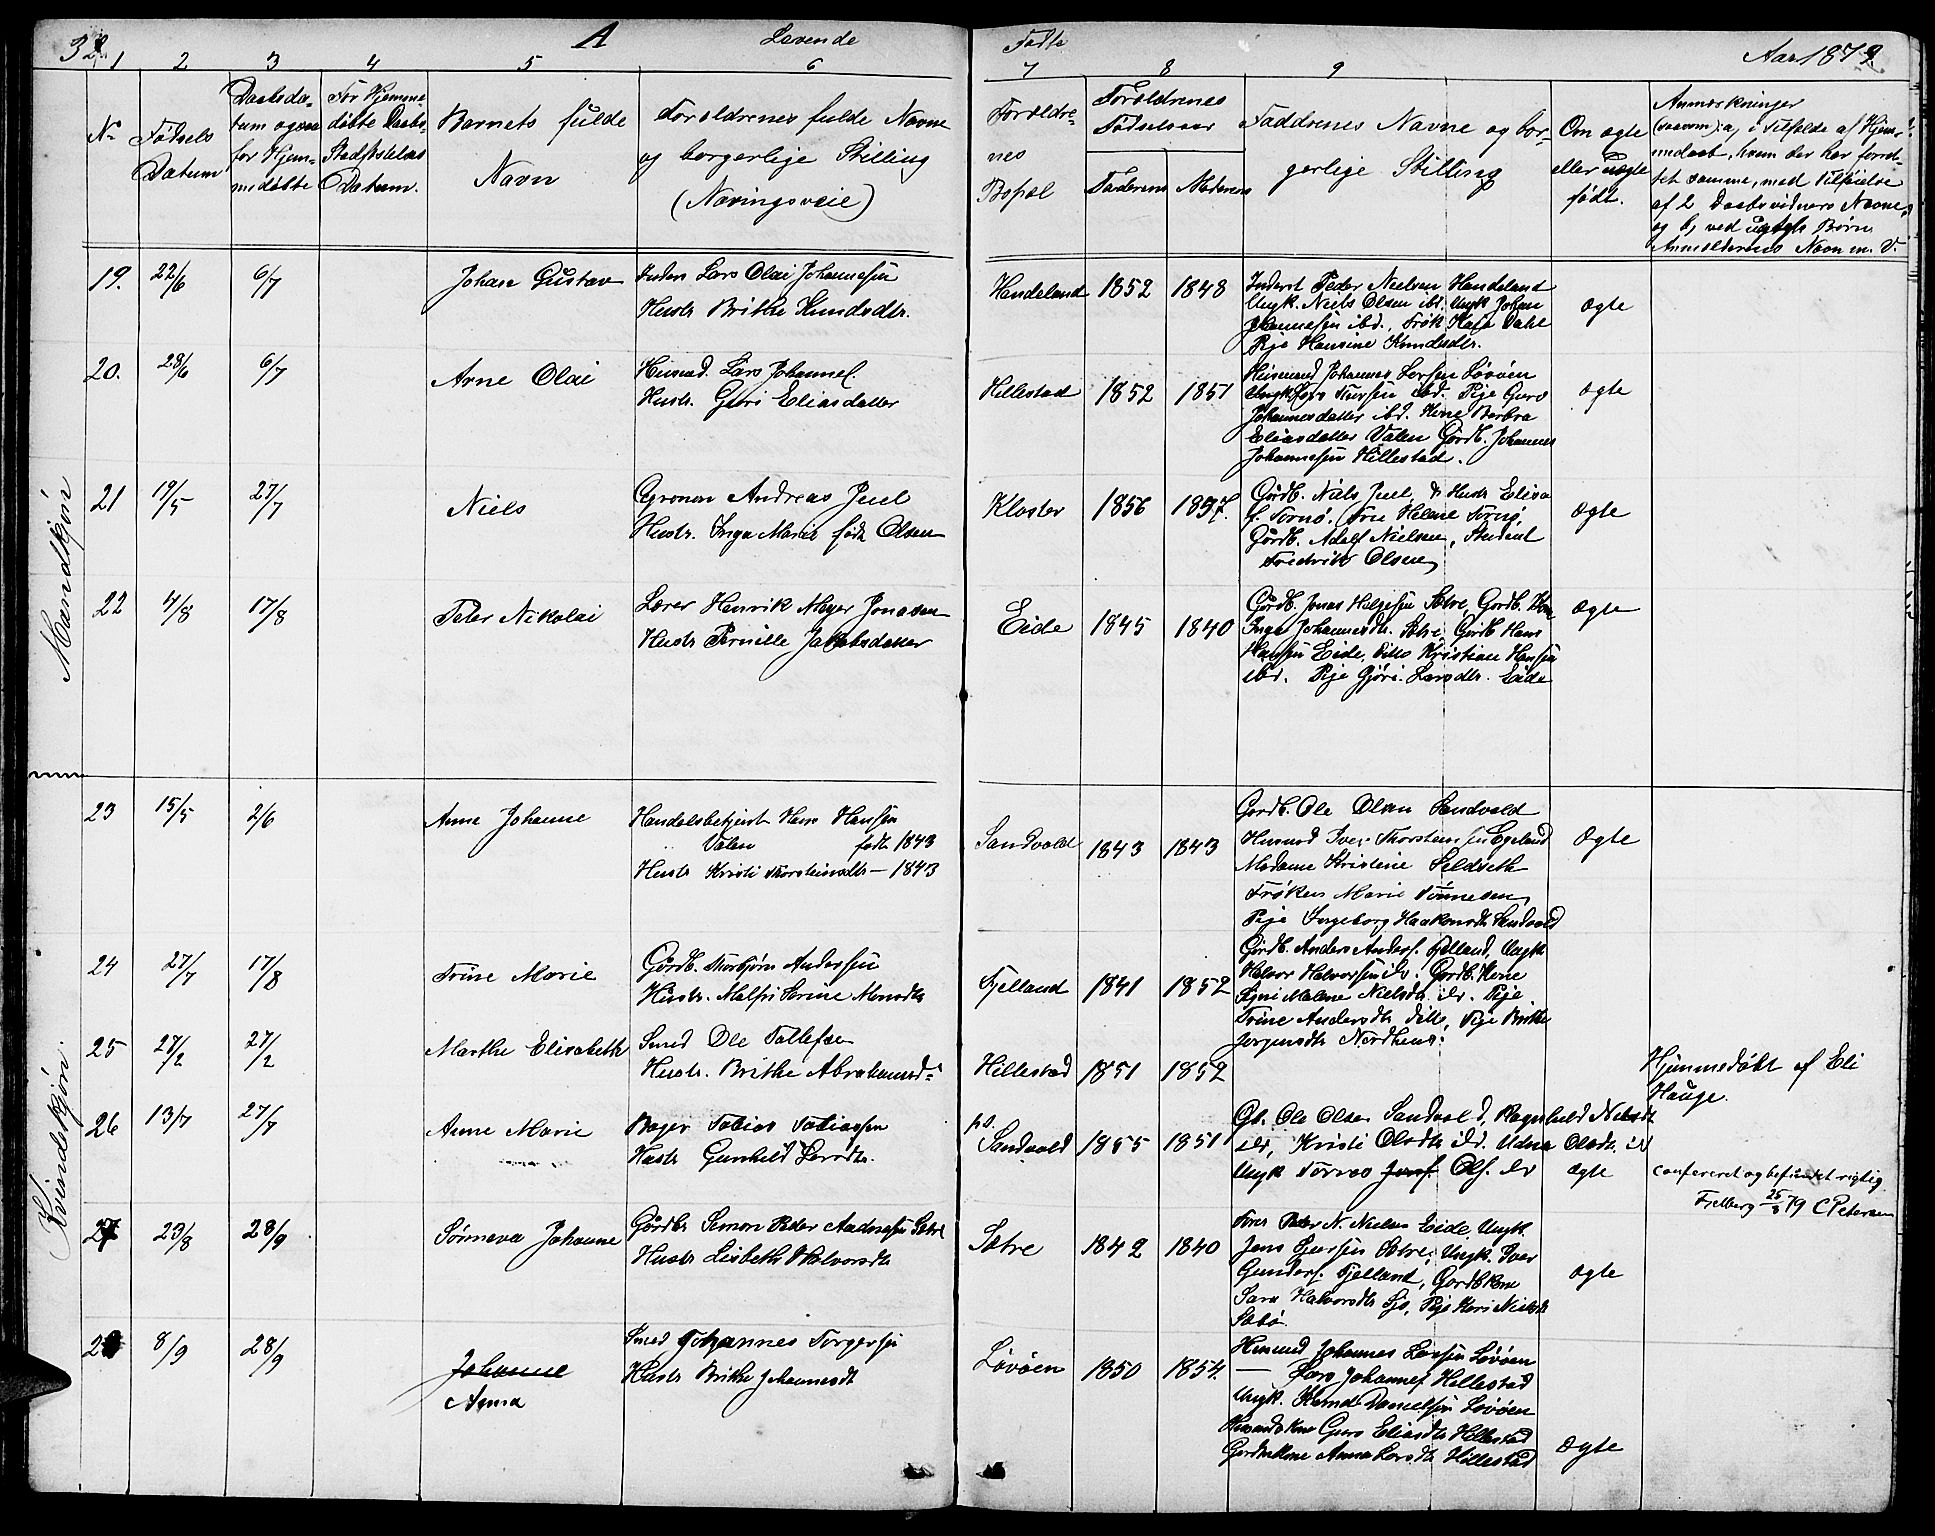 32
A
Levende
Fødte
Aar 1879
1 2 3 4 5 6 7 8 9
Nr
Fødsels Datum
Daabsda-
tum ogsaa
for Hjem-
medøbte
For Hjemme-
døbte Daabs-
Stadfæstelses
Datum.
Barnets fulde
Navn
Forældrenes fulde Navne
og borgerlige Stilling
(Næringsveie)
Forældre-
nes
Bopæl
Forældrenes
Fødselsaar
Faderens Moderens
Faddrenes Navne og bor-
gerlige Stilling
Om ægte
eller uægte
født.
Anmærkninger
(saasom): a, i Tilfælde af Hjem-
medaab, hvem der har forret-
tet samme, med Tilføielse
af 2 Daabsvidners Navne,
og b, ved uægte Børn
Anmelderens Navn m. V.
Mandkjøn
19. 22/6 6/7 Johan Gustav
Lars Olai Johannesen
Hustr. Brithe Knudsdtr.
Handeland 1852 1848
Inderst Peder Nielsen Handeland
Ungk. Niels Olsen ibd. Ungk Johan
Johannesen ibd., Frøk
Pige Hansine Knudsdtr.
ægte
20. 28/6 6/7 Arne Olai
Husmd. Lars Johannes.
Hustr. Guri Eliasdatter
Hillestad 1852 1851
Husmand Johannes Larsen Løvøen
Ungk Lars ibd. Pige Guro
Johannesdatter ibd. Kone Barbra
Eliasdatter Valen Gårdb. Johannes
Johannesen Hillestad.
ægte
21 19/5 27/7 Niels
Agronom Andreas Juel
Hustr. Inga Marie født Olsen
Kloster 1856 1857.
Gårdb. Niels Juel, & Hustr Elisa
f. Tornø, Fru Helene Tornø,
Gårdb. Adolf Nielsen, Student
Fredrik Olsen
ægte
22 4/8 17/8 Peter Nikolai
Lærer Henrik Meyer Jonasen
Hustr Pernille Jakobsdatter
Eide 1845 1840
Gårdb. Jonas Helgesen Sætre, Gårdb. Kone
Inga Johannesdtr. Sætre, Gårdb Hans
Hansen Eide, Ditto Kristian Hansen
ibd. Pige Gjøri Larsdtr. Eide
ægte
Kvindekjøn.
23 15/5 2/6 Anne Johanne
Handelsbetjent Hans Hansen
Valen født 1843
Hustr Kristi Thorsteinsdtr — 1843
Sandvold 1843 1843
Gårdb. Ole Olsen Sandvold
Husmd Iver Thorstensen Egeland
Madame Kristine Seldseth
Frøken Marie Tønnesen
Pige Ingeborg Haakonsdtr Sandvold
ægte
24 27/7 17/8 Trine Marie
Gårdb. Thorbjørn Andersen
Hustr. Malfri Serine Monsdtr
Fjelland 1841 1852
Gårdb. Anders Anders. Fjelland, Ungk
Halvor Halvorsen ibd. Gårdb. Kone
Malene Nielsdtr ibd. Pige
Trine Andersdtr ditto, Pige Brithe
Jørgensdtr Nordhuus.
25 27/2 27/2 Marthe Elisabeth
Smed Ole Tollefsen
Hustr. Brithe Abrahamsd.
Hillestad 1851 1852
Hjemmedøbt af Eli
Hauge.
26 13/7 27/7 Anne Marie
Bager Tobias Tobiassen
Hustr Gunhild Larsdtr.
pd.
Sandvold 1855 1851
Gb. Ole Olsen Sandvold, Ragnhild Nilsdtr
ibd, Kristi Olsdtr ibd. Udna Olsdtr. ibd
Ungk Tørres Ols. ibd
ægte
confereret og befundet rigtig
Fjelberg 25/8 79 C Petersen
27 23/8 28/9 Sønneva Johanne
Gårdbr Simon Peder Andersen Sætre
Hustr Lisbeth Halvorsdtr
Sætre 1842 1840
Peder N. Nielsen Eide, Ungk.
Jens Sjursen Sætre, Ungk. Iver
Gunders. Fjelland, Gårdb Kone
Sara Halvorsdtr Sjo, Pige Kari Nielsdtr
Sæbø.
ægte
28 8/9 28/9 Johanne
Anna
Smed Johannes Torgersen
Hustr Brithe Johannesdt
Løvøen 1850 1854.
Husmd Johannes Larsen Løvøen
— Lars Johannes. Hillestad
Ungk. Knud Danielsen Løvøen
Husmands Kone Guro Eliasdtr Hillestad
Gårdm Kone Anna Larsdtr Hillestad
ægte